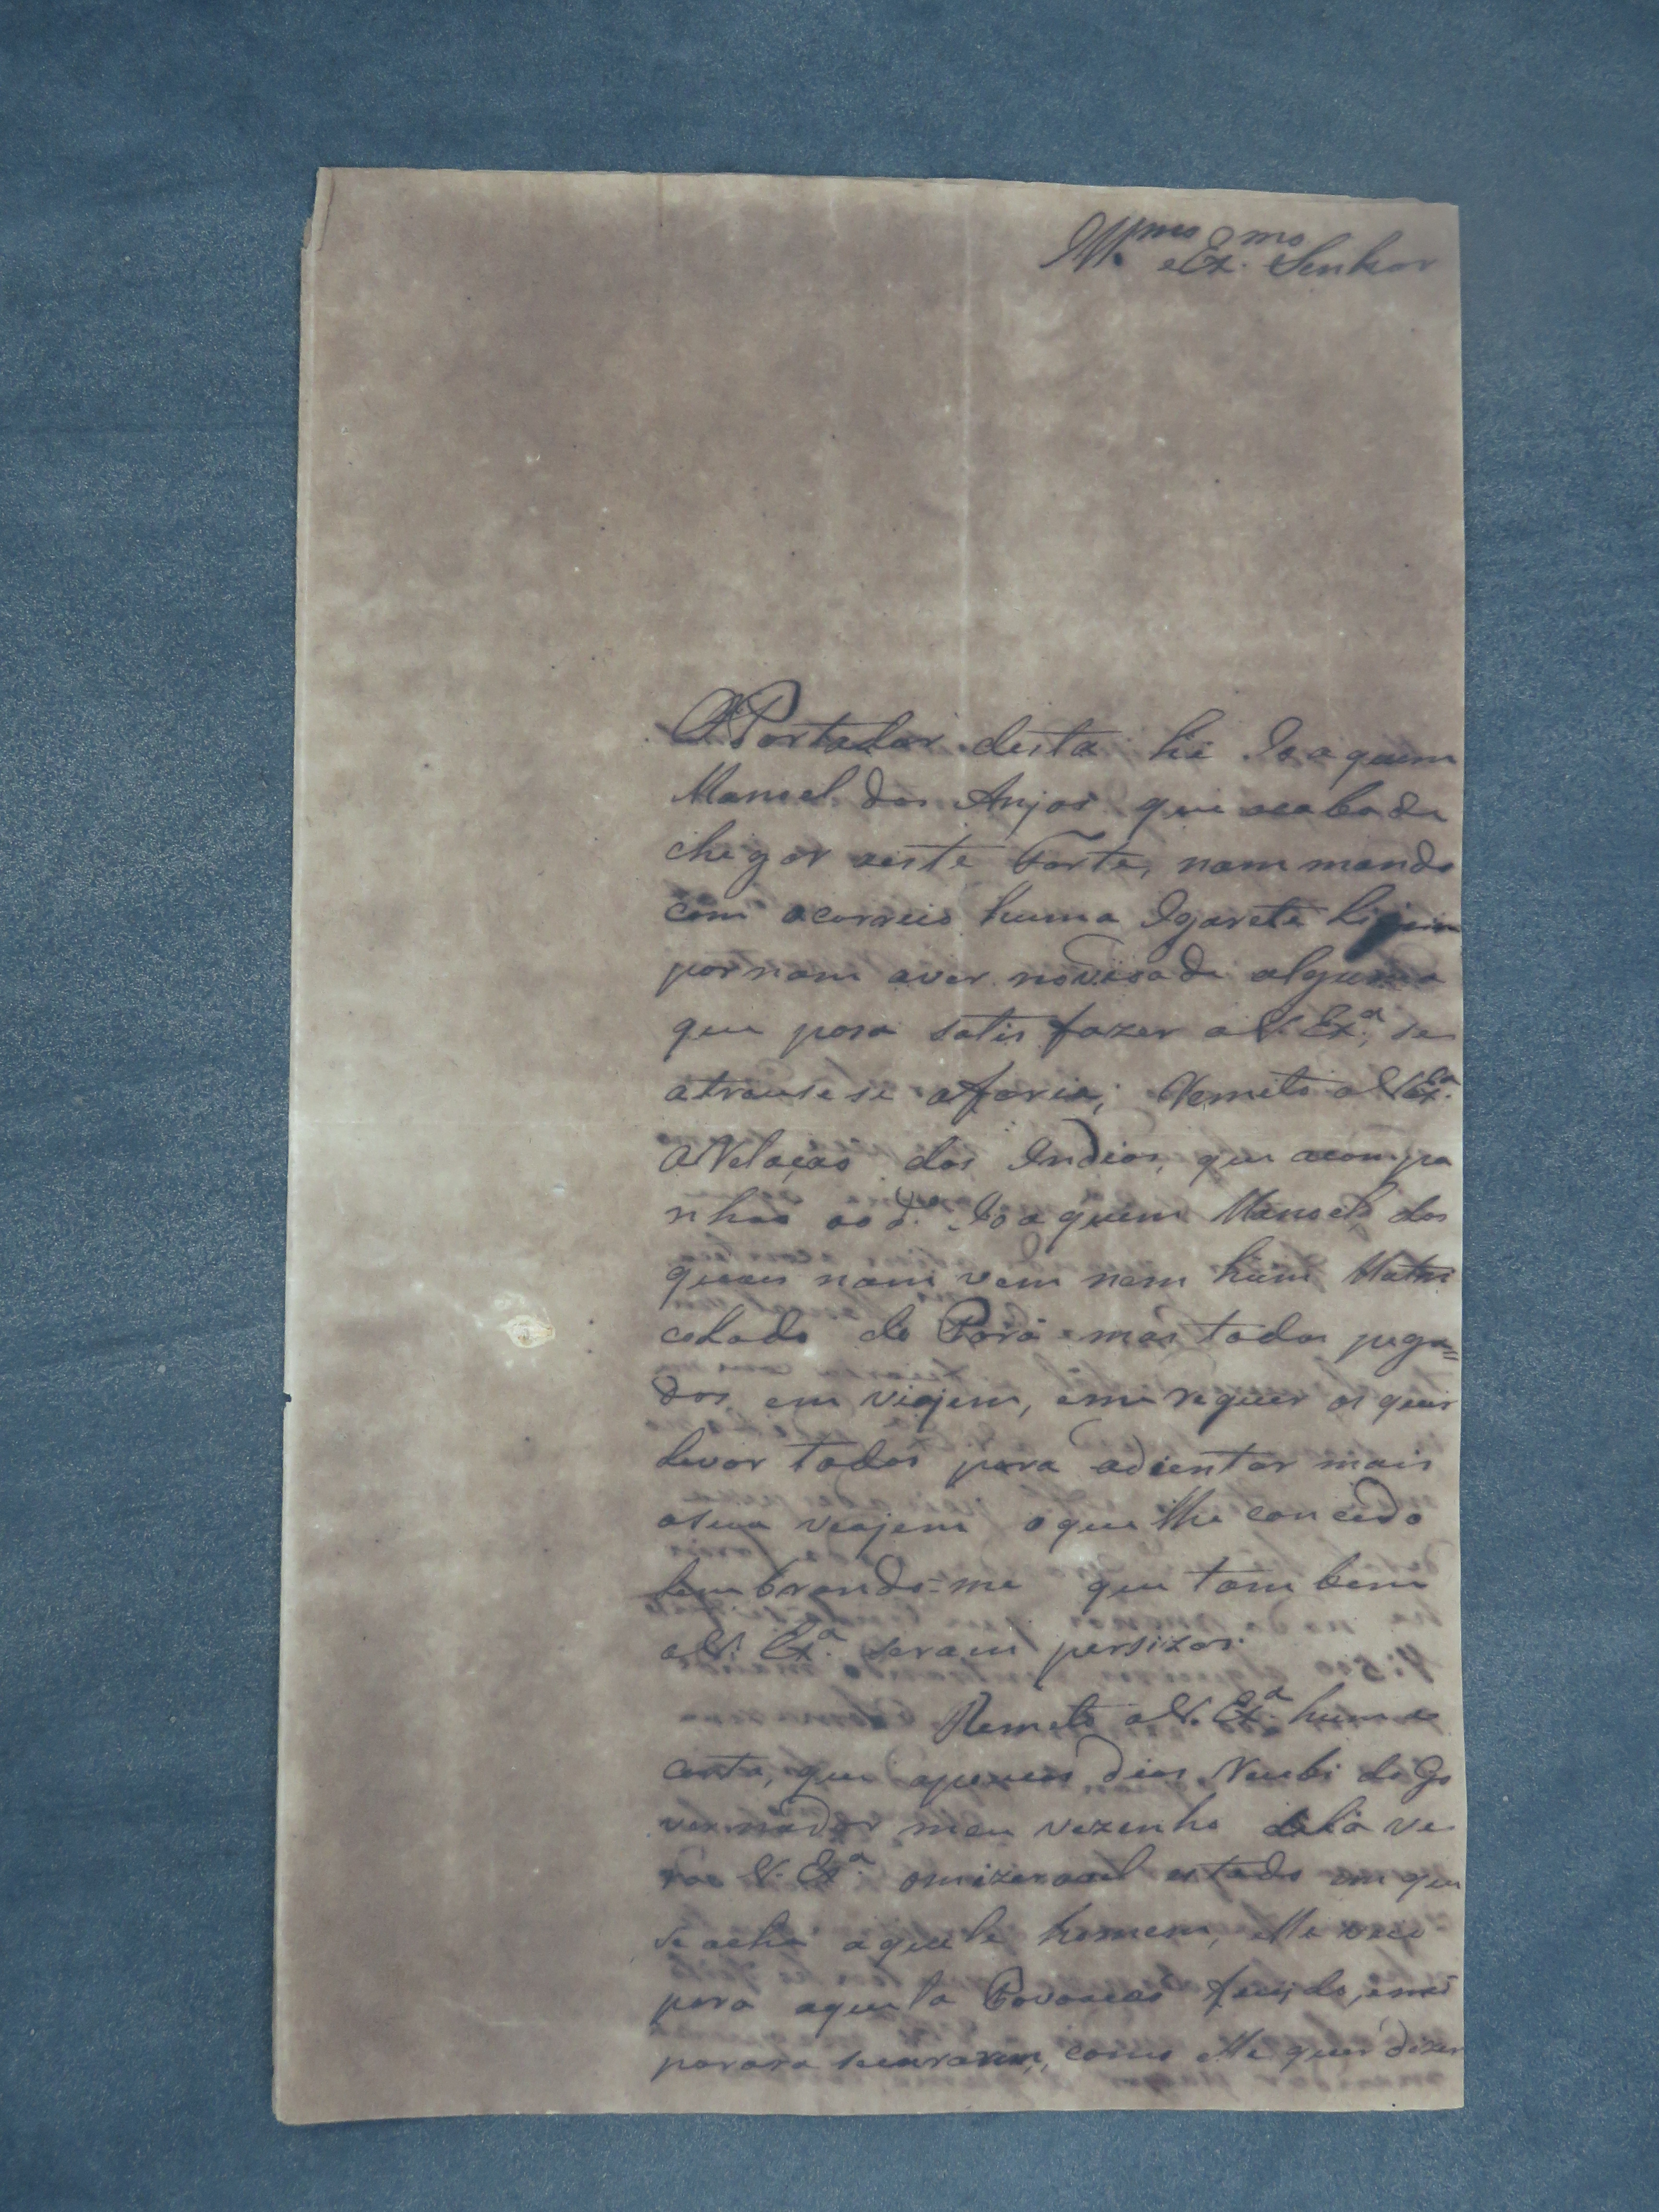 Ill.mo e Ex.mo Senhor
O Portador desta hé Joaquim
Manoel dos Anjos que acaba de
chegar aeste Forte, nam mando
com o correio huma Igareté ligeira
por nam aver novisade alguma
que posa satisfazer a V. Ex.a, se
atrause se aforia; Remeto a V. Ex.a
a Relaçao dos Indios, que acompa
nhao ao d.o Joaquim Manoel dos
quais nam vem nem hum Matri
colado do Pará mas todos pega=
dos em viajem, eme requer os quer
levar todos para adientar mais
asua veajem oque lhe concedo
lembrando-me que tambem
a V. Ex.a seram persizos.
Remeto a V. Ex.a huma
carta, que apoucos dias Recebi do Go
vernador meu vezenho dela ve
rao V. Ex.a omizeravel estado em que
se acha aquele homem, elle veio
para aquela Povoacao
para se curarem, como elle quer dizer